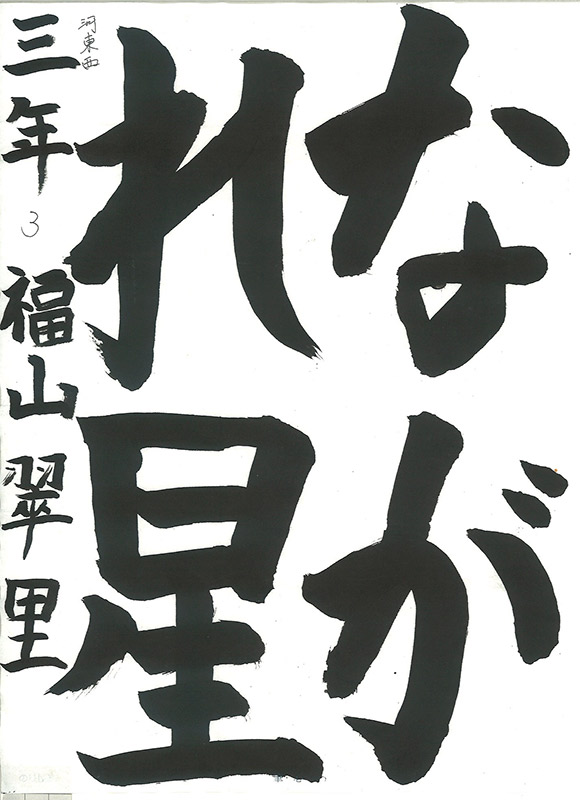 なが
れ星
河東西
三年3 福山翠里